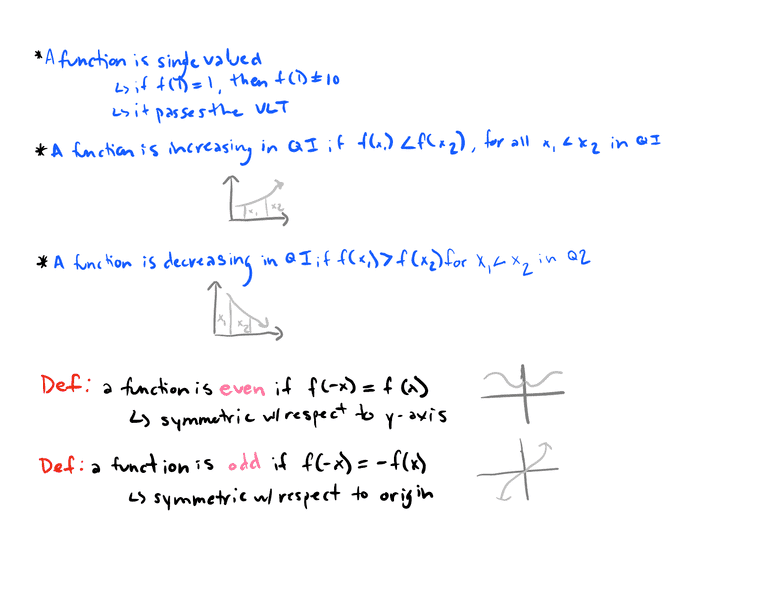 * A function is single valued
↳ if f(1) = 1, then f(1) ≠ 10
↳ it passes the VLT
* A function is increasing in QI if f(x₁) < f(x₂), for all x₁ < x₂ in QI
x₁ x₂
* A function is decreasing in QI if f(x₁) > f(x₂) for x₁ < x₂ in Q2
x₁ x₂
Def: a function is even if f(-x) = f(x)
↳ symmetric w/ respect to y-axis
Def: a function is odd if f(-x) = -f(x)
↳ symmetric w/ respect to origin